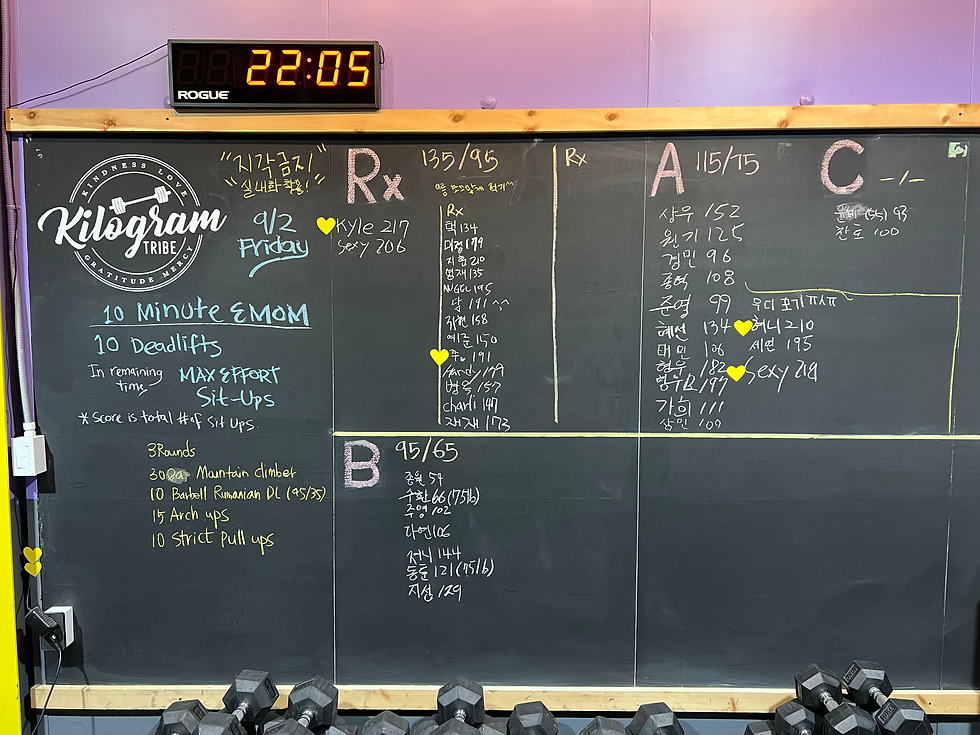 22:05
ROGUE
KINDNESS LOVE
Kilogram
TRIBE
GRATITUDE MERCY
"지각금지"
"실내화 착용!"
9/2
Friday
10 Minute EMOM
10 Deadlifts
In remaining
time,
MAX EFFORT
Sit-Ups
*Score is total # of Sit Ups.
3Rounds
30 Mountain climber
10 Barbell Rumanian DL (95/35)
15 Arch ups
10 Strict Pull ups
Rx 135/95
Kyle 217
Sexy 206
Rx
택 134
미정 179
지훈 210
135
NUGGL 195
담 191 ^^
158
예준 150
191
Andy 179
157
Charli 147
재재 173
Rx
A 115/75
상우 152
원기 125
경민 96
종혁 108
준영 99
혜선 134
태민 106
형우 182
197
가희 111
상민 109
우디 포기 ㅠㅅㅠ
허니 210
세연 195
Sexy 219
C -/-
윤혜 (55) 93
찬호 100
B 95/65
종원 54
수한 66 (75lb)
주영 102
다연 106
저니 144
동훈 121 (75lb)
지성 129